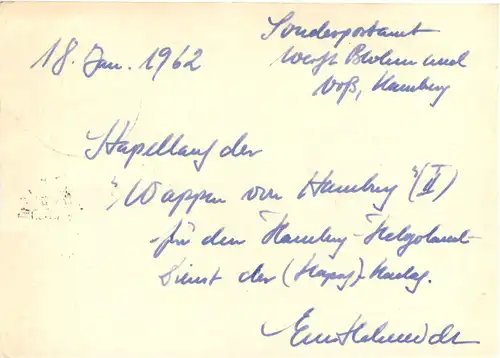 18. Jan. 1962
Sonderpostamt
Werft Blohm und
Voß, Hamburg
Stapellauf der
"Wappen von Hamburg" (II)
für den Hamburg-Helgoland-
Dienst der (Hapag)-Hadag.